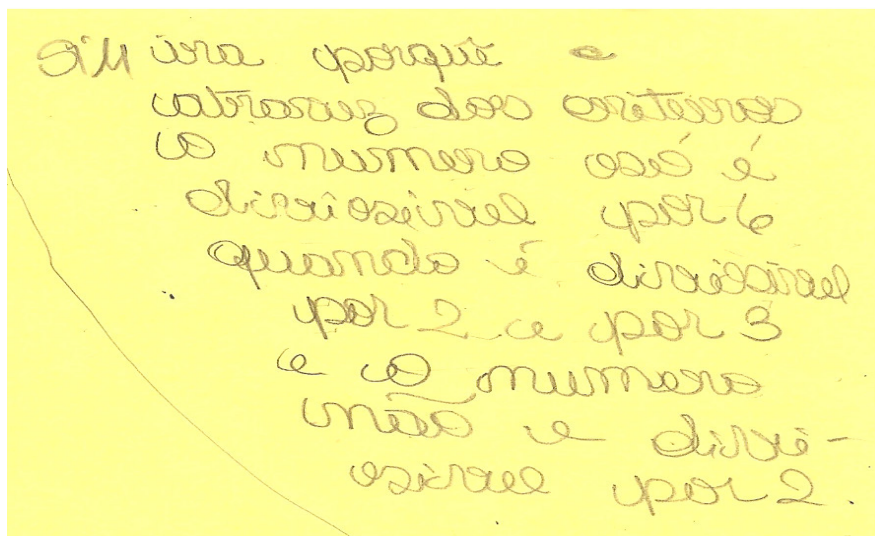 SiM ira porque e
atravez dos criterios
O numero só é
divisivel por 6
quando é divisivel
por 2 e por 3
e o numero
não e divi-
sivel por 2.